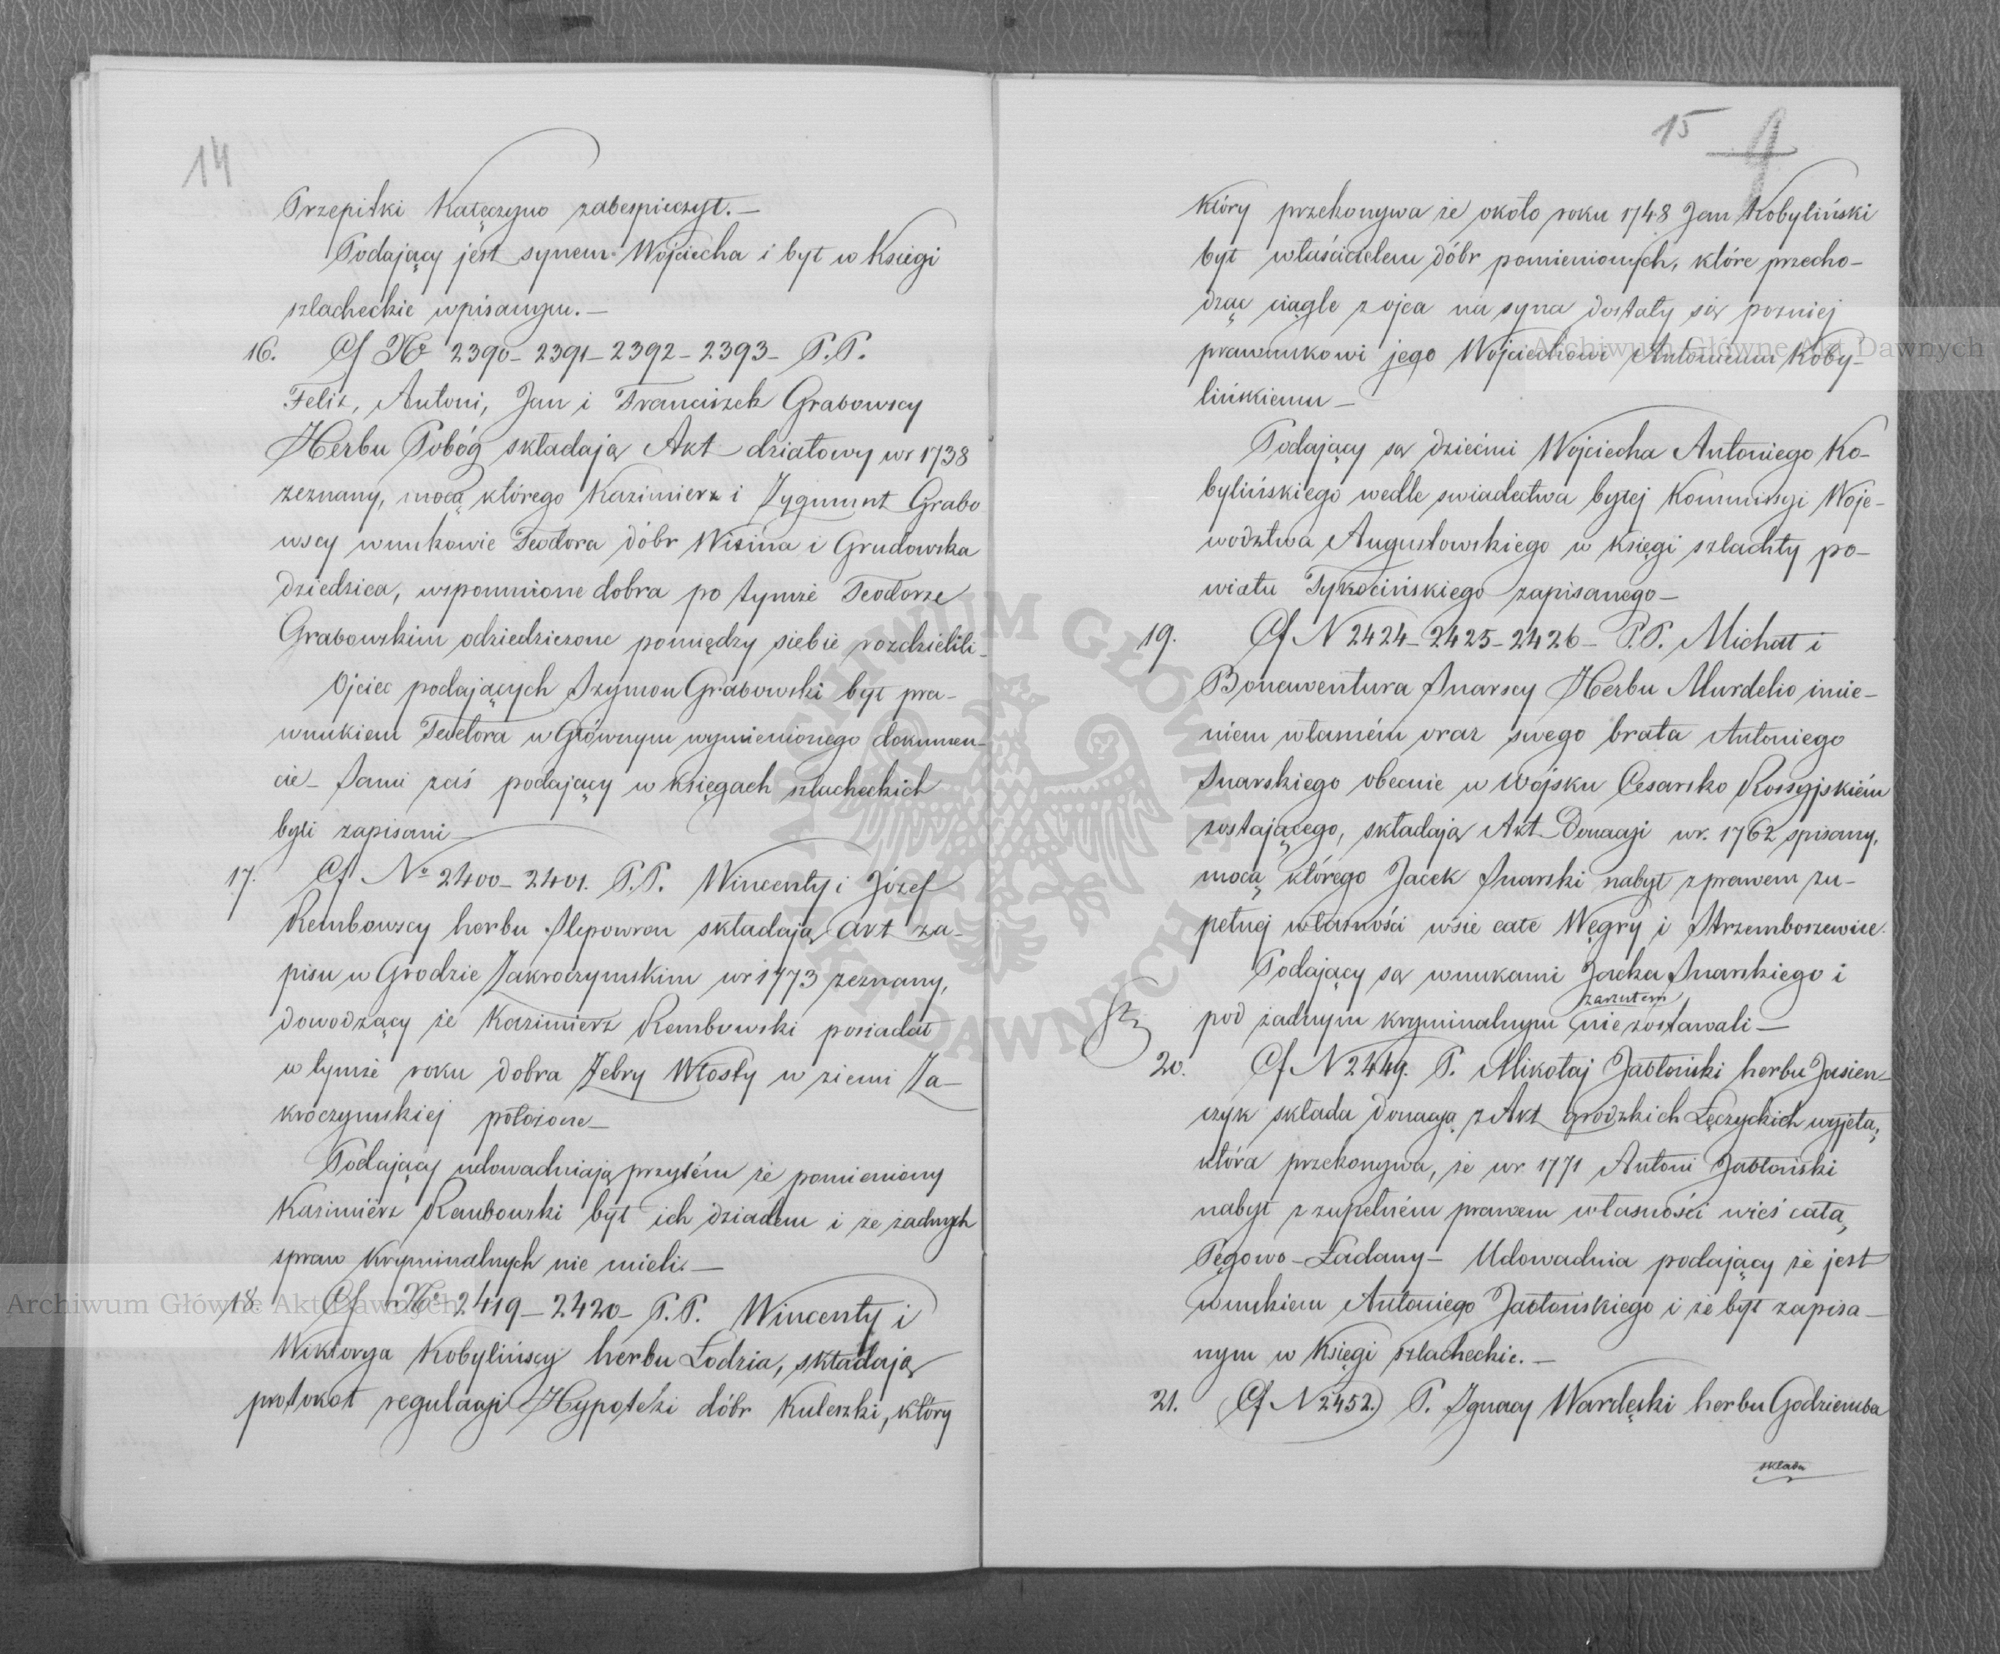 14
Przepitki Kątęczyno zabespieczył.—
Podający jest synem Wojciecha i był w Księgi
szlacheckie wpisanym.—
16. Cf Nr 2390-2391-2392-2393- P.P.
Felix, Antoni, Jan i Franciszek Grabowscy
Herbu Pobóg składają Akt działowy w r 1738
zeznany, mocą którego Kazimierz i Zygmunt Grabo
wscy wnukowie Teodora dóbr Wizina i Grudowska
dziedzica, wspomnione dobra po tymże Teodorze
Grabowskim odziedziczone pomiędzy siebie rozdzielili-
Ojciec podających Szymon Grabowski był pra-
wnukiem Teodora w Głównym wymienionego dokumen-
cie- Sami zaś podający w księgach szlacheckich
byli zapisani—
17. Cf No 2400-2401. P.P. Wincenty i Józef
Rembowscy herbu Slepowron składają Akt za-
pisu w Grodzie Zakroczymskim w r 1773 zeznany,
dowodzący że Kazimierz Rembowski posiadał
w tymże roku dobra Zebry Włosty w ziemi Za-
kroczymskiej położone—
Podający udowadniają przytém że pomieniony
Kazimiérz Rembowski był ich dziadem i że żadnych
spraw Kryminalnych nie mieli.—
18. Cf Nr 2419-2420- P.P. Wincenty i
Wiktorya Kobylińscy herbu Łodzia, składają
protokół regulacyi Hypoteki dóbr Kuleszki, który
15 4
który przekonywa że około roku 1748 Jan Kobyliński
był właścicielem dóbr pomienionych, które przecho-
dząc ciągle z ojca na syna dostały się pozniej
prawnukowi jego Wojciechowi Antoniemu Koby-
lińskiemu—
Podający są dziećmi Wojciecha Antoniego Ko-
bylińskiego wedle swiadectwa byłej Kommissyi Woje-
wodztwa Augustowskiego w księgi szlachty po-
wiatu Tykocińskiego zapisanego—
19. Cf N 2424-2425-2426- P.P. Michał i
Bonawentura Snarscy Herbu Murdelio imie-
niem własném oraz swego brata Antoniego
Snarskiego obecnie w Wojsku Cesarsko Rossyjskiém
zostającego, składają Akt Donacyi w r. 1762 spisany,
mocą którego Jacek Snarski nabył z prawem zu-
pełnej własności wsie całe Węgry i Strzemboszewice.
Podający są wnukami Jacka Snarskiego i
pod żadnym kryminalnym zarzutem nie zostawali—
20. Cf N 2449. P. Mikołaj Jabłoński herbu Jasień-
czyk składa donacyą z Akt grodzkich Łęczyckich wyjętą,
która przekonywa, że w r 1771 Antoni Jabłoński
nabył z zupełném prawem własności wieś całą,
Pęgowo-Ładany- Udowadnia podający że jest
wnukiem Antoniego Jabłońskiego i że był zapisa-
nym w Księgi szlacheckie.—
21. Cf N 2452.) P. Ignacy Wardęski herbu Godziemba
składa
Archiwum Główne Akt Dawnych
Archiwum Główne Akt Dawnych
ARCHIWUM GŁÓWNE AKT DAWNYCH